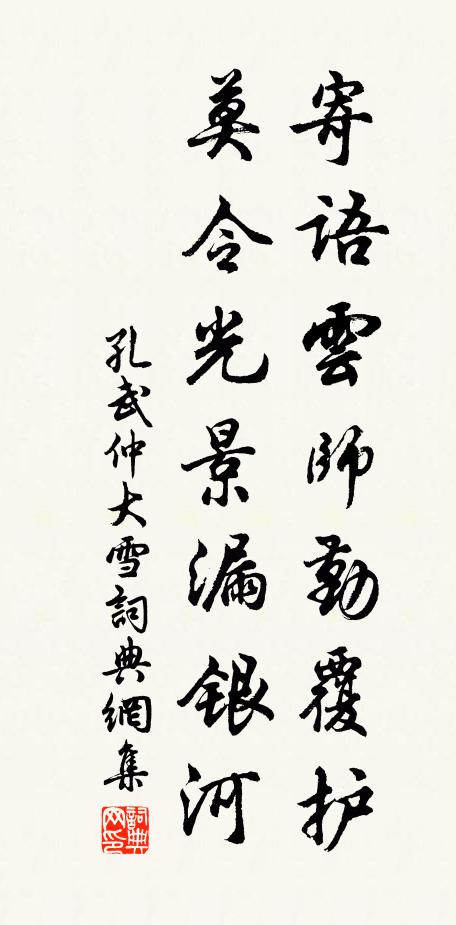 寄語雲師勤覆护
莫令光景漏銀河
孔武仲大雪詞典網集
詞典网印